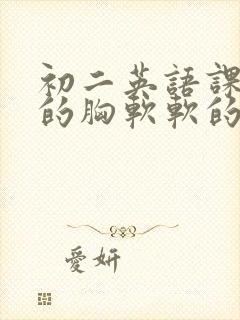 初二英語課
的胸軟軟的
愛妍